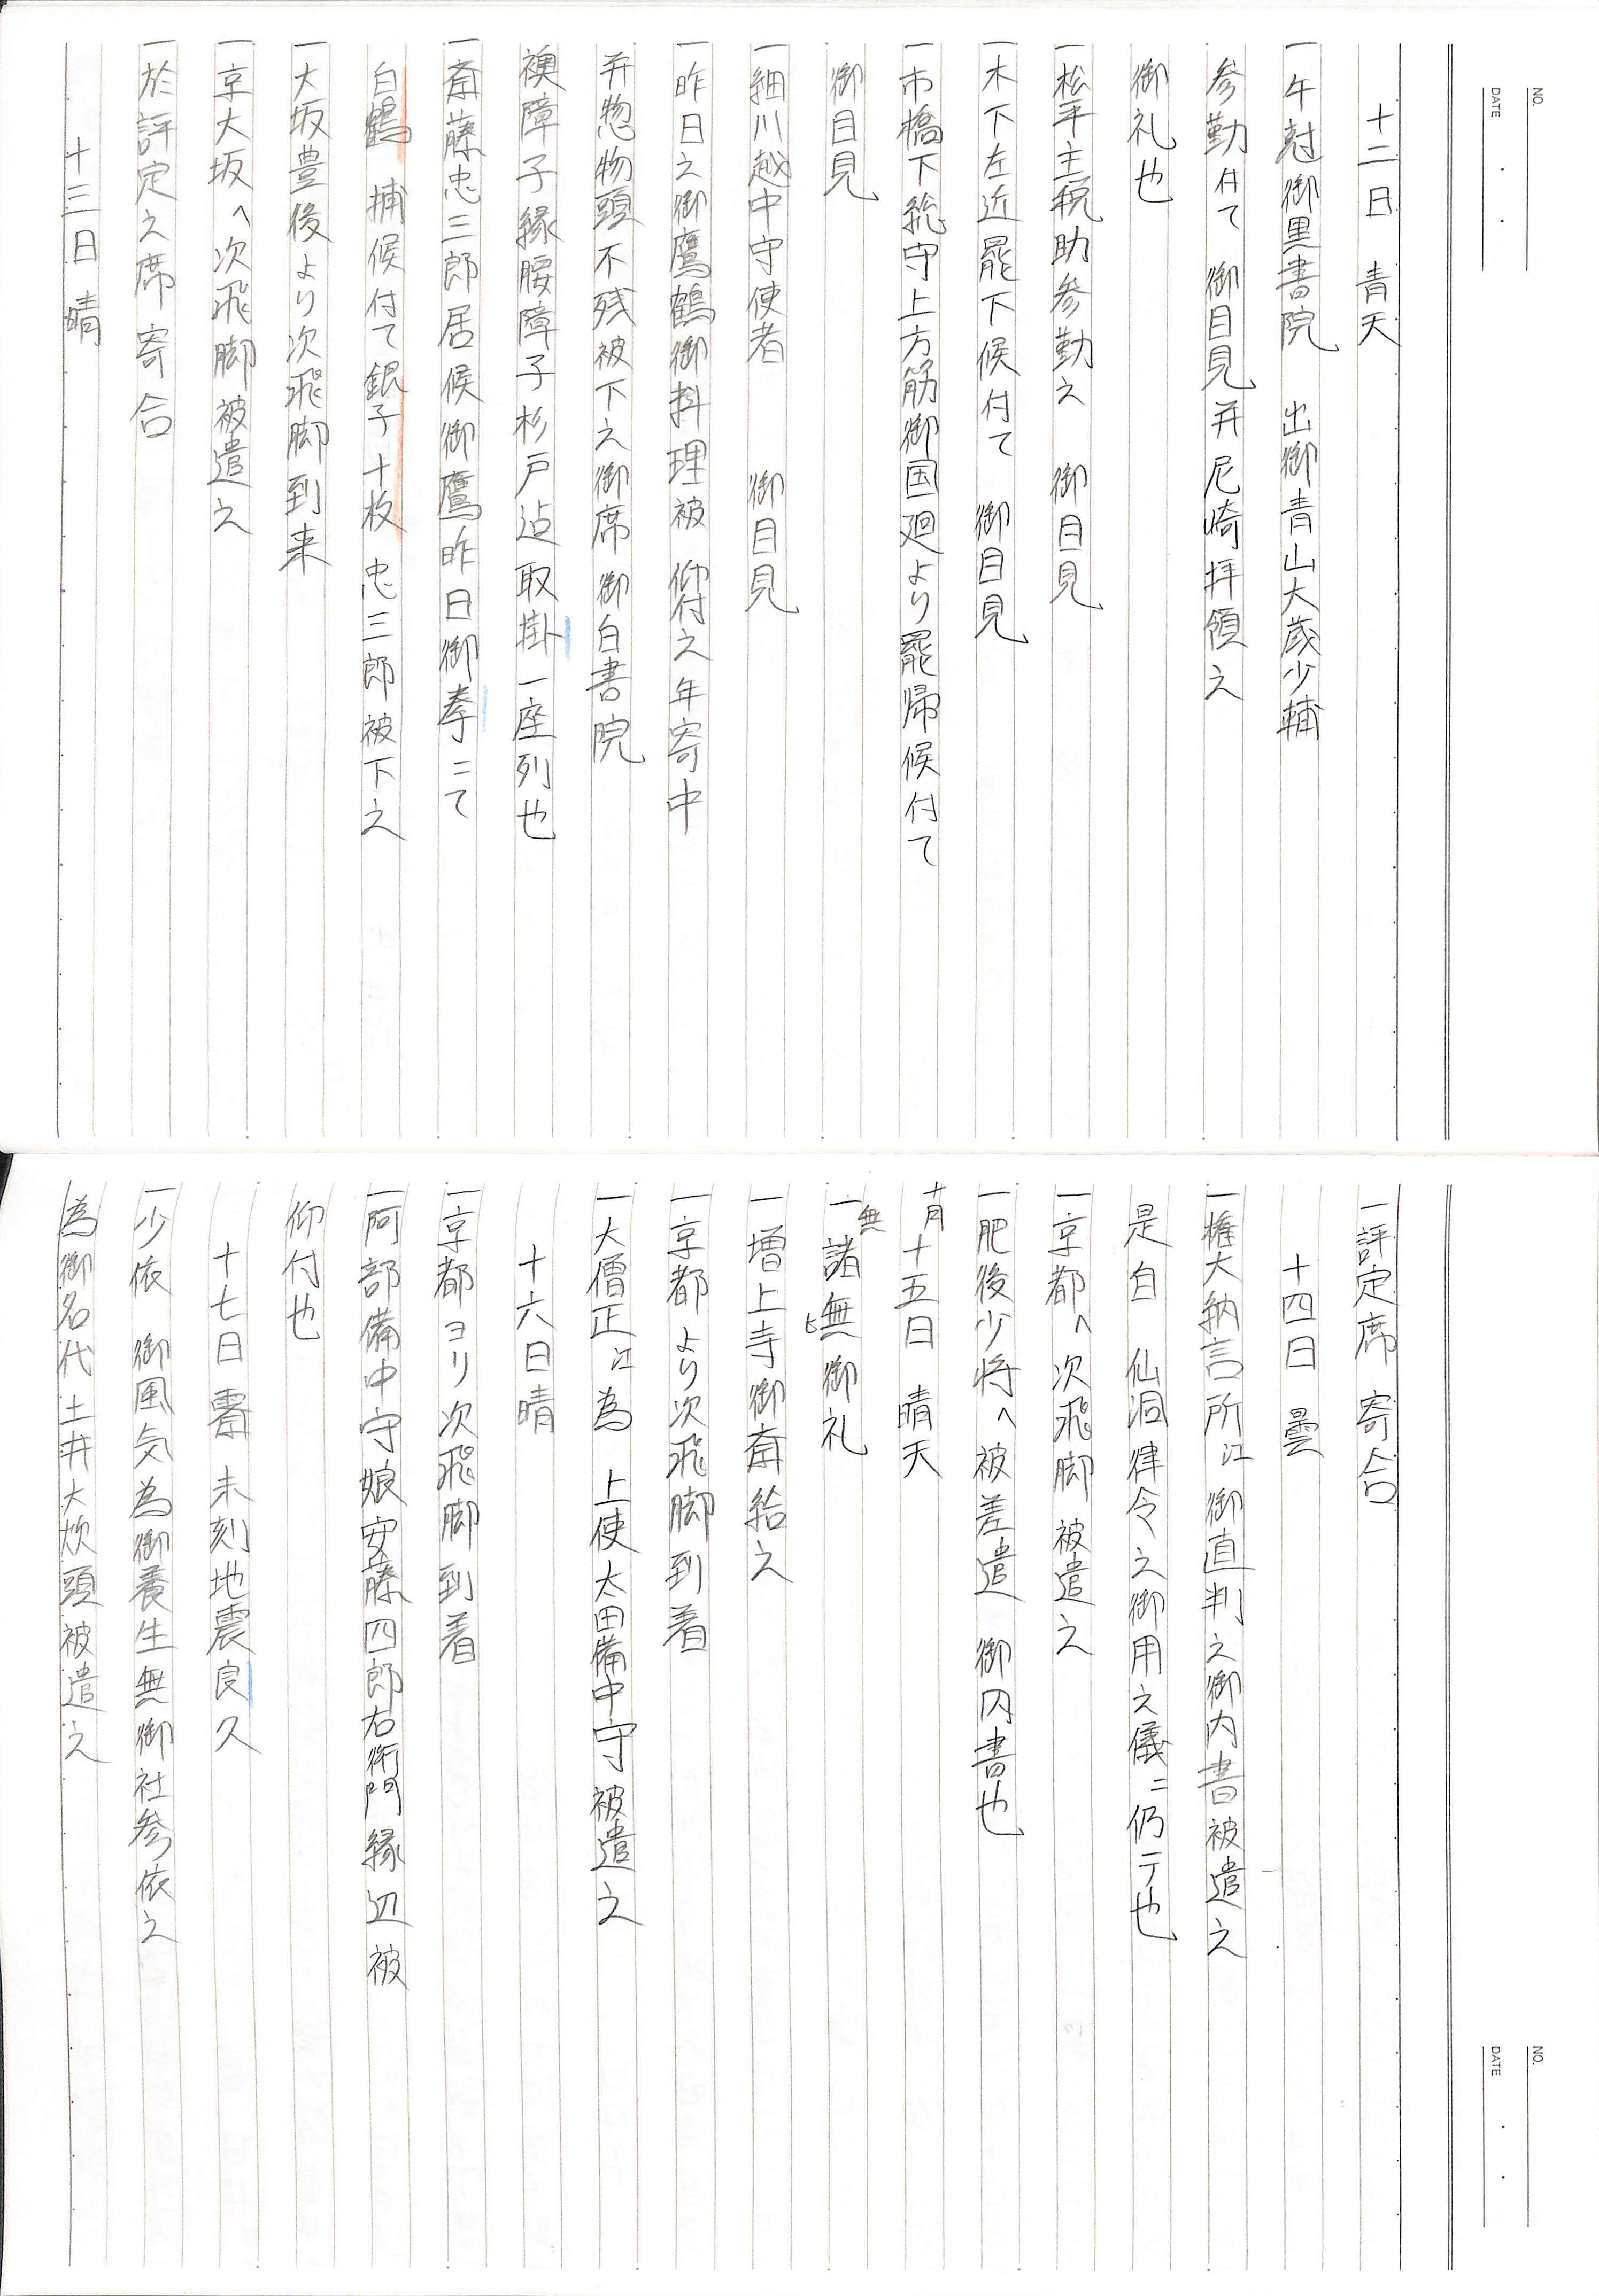 十二日　青天
一午尅御黒書院　出御青山大蔵少輔
参勤付て　御目見并尼崎拝領之
御礼也
一松平主税助参勤之　御目見
一木下左近罷下候付て　御目見
一市橋下総守上方筋御国廻より罷帰候付て
御目見
一細川越中守使者　御目見
一昨日之御鷹鶴御料理被　仰付之年寄中
并惣物頭不残被下之御席御白書院
襖障子縁腰障子杉戸迠取掛一座列也
一斎藤忠三郎居候御鷹昨日御拳ニて
白鶴　捕候付て銀子十枚　忠三郎被下之
一大坂豊後より次飛脚到来
一京大坂へ次飛脚被遣之
一於評定之席寄合
十三日　晴
一評定席　寄合
十四日　曇
一権大納言所江御直判之御内書被遣之
是自　仙洞律令之御用之儀ニ仍テ也
一京都へ次飛脚　被遣之
一肥後少将へ被差遣　御内書也
十月十五日　晴天
一無諸無ヒ御礼
一増上寺御斎給之
一京都より次飛脚到着
一大僧正江為　上使太田備中守被遣之
十六日晴
一京都ヨリ次飛脚到着
一阿部備中守娘安藤四郎右衛門縁辺被
仰付也
十七日　霽　未刻地震良久
一少依　御風気為御養生無御社参依之
為御名代土井大炊頭被遣之
NO.
DATE　・　・
NO.
DATE　・　・